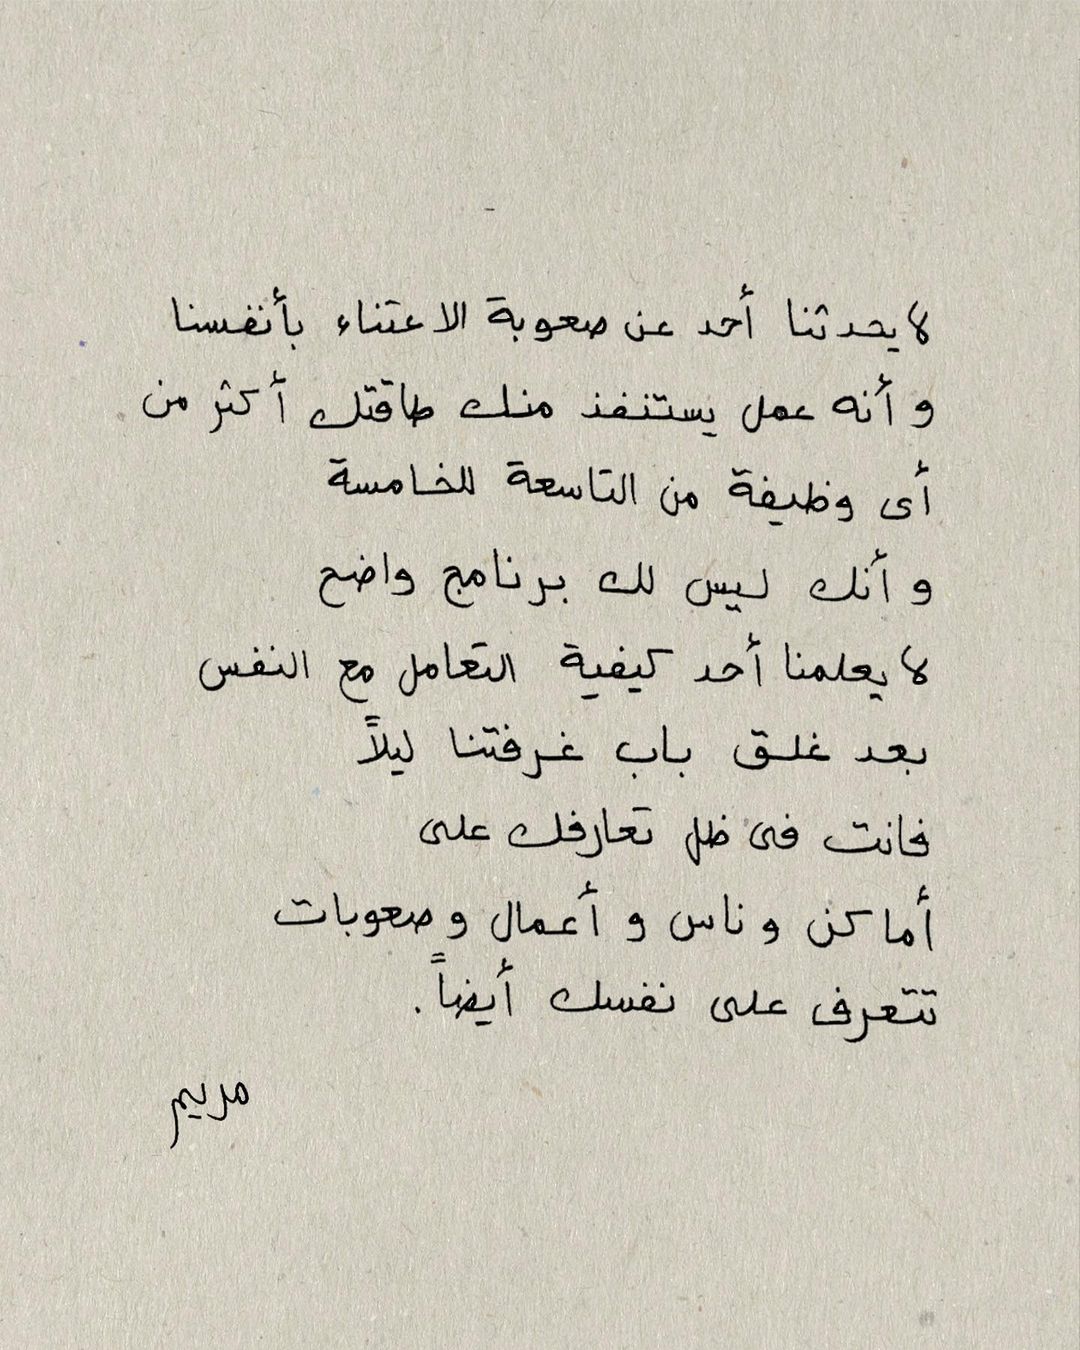 لا يحدثنا أحد عن صعوبة الاعتناء بأنفسنا
و أنه عمل يستنفذ منك طاقتك أكثر من
أى وظيفة من التاسعة للخامسة
و أنك ليس لك برنامج واضح
لا يعلمنا أحد كيفية التعامل مع النفس
بعد غلق باب غرفتنا ليلاً
فانت فى ظل تعارفك على
أماكن و ناس و أعمال و صعوبات
تتعرف على نفسك أيضاً.
مريم